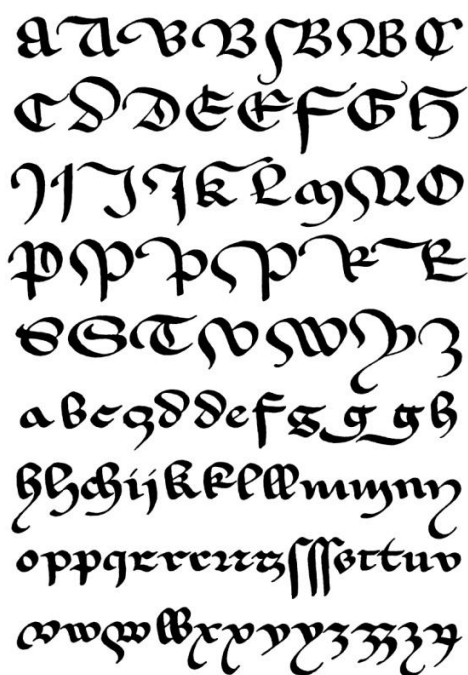 A A B B B B C
C D D E E F G H
I I J J K L M N O
P P P P R R
S S T V W Y Z
a b c d d e f g g g h
h h ch i j k k l ll m m n n
o p p q r r r ſ ſſ s t t u v
v w w x x y y z z z